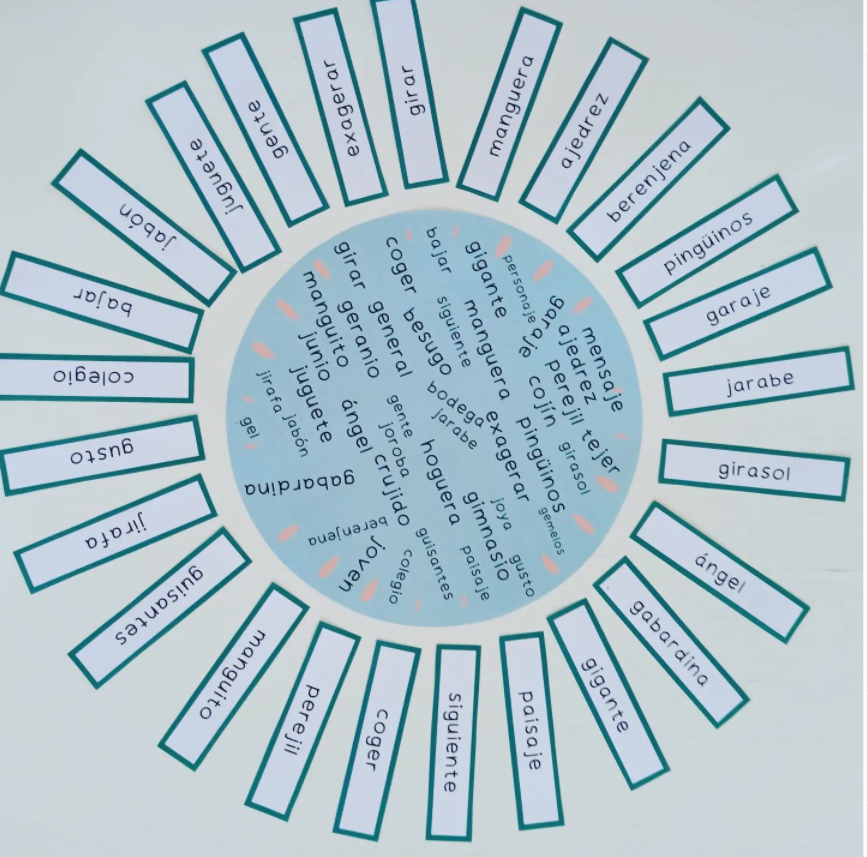 girar
manguera
ajedrez
berenjena
pingüinos
garaje
jarabe
girasol
ángel
gabardina
gigante
paisaje
siguiente
coger
perejil
manguito
guisantes
jirafa
gusto
colegio
bajar
jabón
juguete
gente
exagerar
bajar
gigante
personaje
coger
girar
siguiente
manguera
garaje
ajedrez
mensaje
manguito
geranio
general
besugo
junio
juguete
bodega
jarabe
cojín
perejil
tejer
jirafa
jabón
gel
ángel
gente
joroba
crujido
hoguera
exagerar
pingüinos
girasol
gabardina
berenjena
joven
colegio
guisantes
gimnasio
joya
paisaje
gusto
gemelos